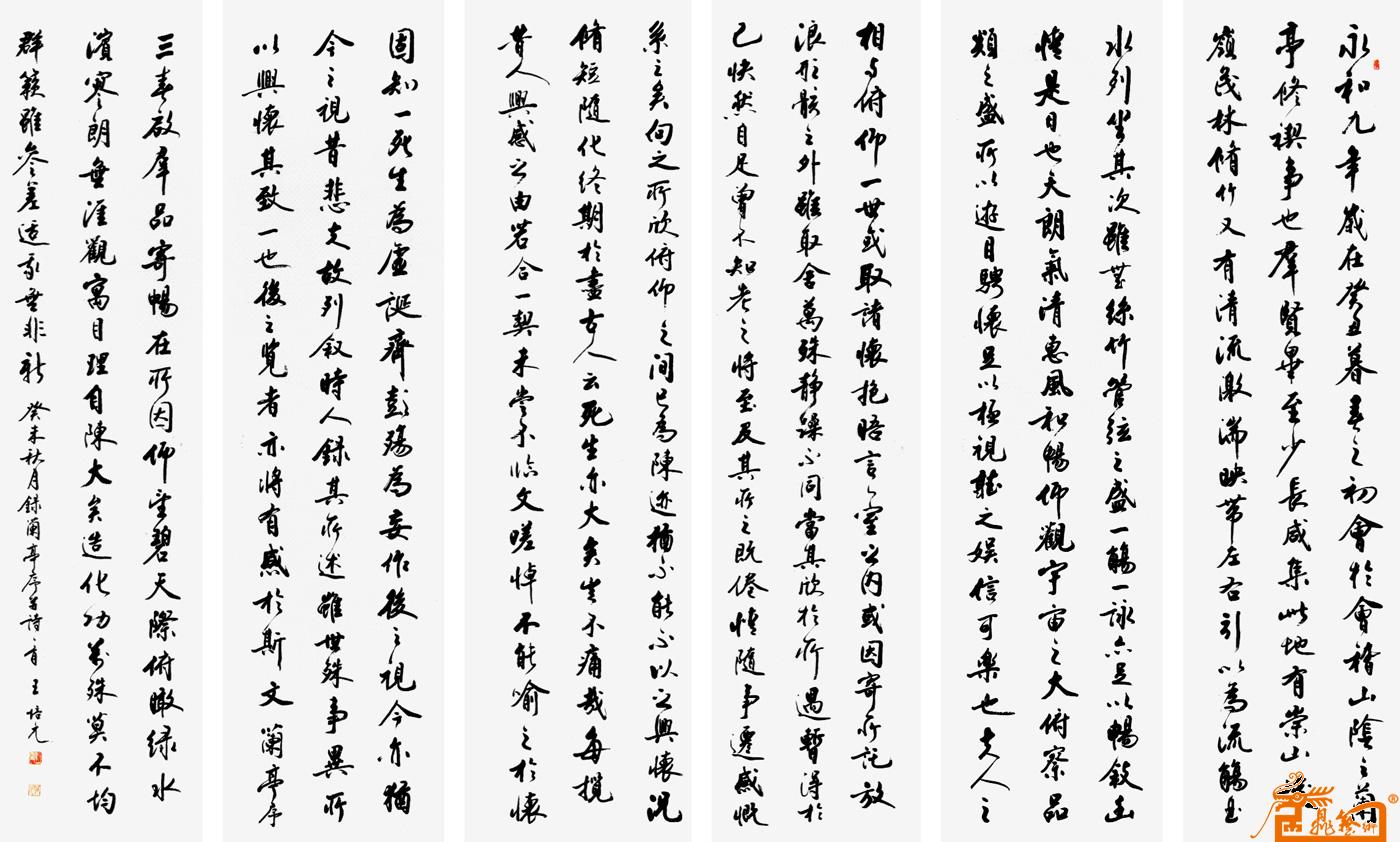 永和九年歲在癸丑暮春之初會於會稽山陰之蘭
亭修禊事也羣賢畢至少長咸集此地有崇山峻
嶺茂林脩竹又有清流激湍映帶左右引以為流觴曲
水列坐其次雖無絲竹管弦之盛一觴一詠亦足以暢敘幽
情是日也天朗氣清惠風和暢仰觀宇宙之大俯察品
類之盛所以遊目騁懷足以極視聽之娛信可樂也夫人之
相與俯仰一世或取諸懷抱晤言一室之內或因寄所託放
浪形骸之外雖取舍萬殊靜躁不同當其欣於所遇暫得於
己快然自足曾不知老之將至及其所之既倦情隨事遷感慨
系之矣向之所欣俯仰之間已為陳迹猶不能不以之興懷況
脩短隨化終期於盡古人云死生亦大矣豈不痛哉每攬
昔人興感之由若合一契未嘗不臨文嗟悼不能喻之於懷
固知一死生為虛誕齊彭殤為妄作後之視今亦猶
今之視昔悲夫故列敘時人錄其所述雖世殊事異所
以興懷其致一也後之覽者亦將有感於斯文蘭亭序
三春啟羣品寄暢在所因仰望碧天際俯瞰綠水
濱寥朗無涯觀寓目理自陳大矣造化功萬殊莫不均
群籟雖參差適我無非新 癸未秋月錄蘭亭序並詩一首 王培元